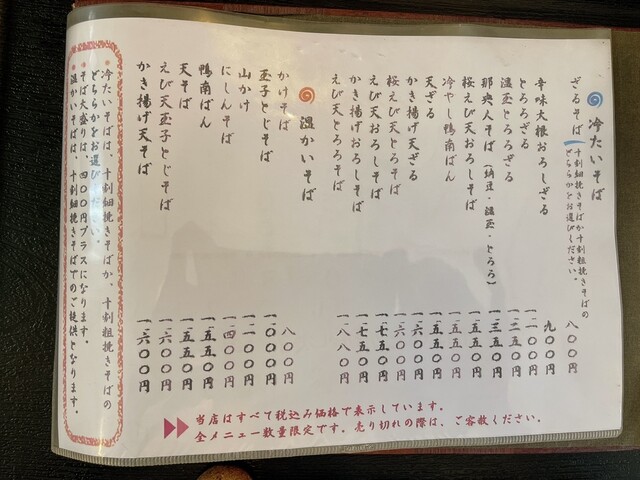 冷たいそば
ざるそば 十割細挽きそばか十割粗挽きそばの
どちらかをお選びください。 八〇〇円
辛味大根おろしざる 九〇〇円
とろろざる 一、一〇〇円
温玉とろろざる 一、二五〇円
那央人そば（納豆・温玉・とろろ） 一、三五〇円
桜えび天おろしそば 一、五五〇円
冷やし鴨南ばん 一、五五〇円
天ざる 一、五五〇円
かき揚げ天ざる 一、六〇〇円
桜えび天とろろそば 一、六〇〇円
えび天おろしそば 一、七五〇円
かき揚げおろしそば 一、七五〇円
えび天とろろそば 一、八八〇円
温かいそば
かけそば 八〇〇円
玉子とじそば 一、〇〇〇円
山かけ 一、一〇〇円
にしんそば 一、四〇〇円
鴨南ばん 一、五五〇円
天そば 一、五五〇円
えび天玉子とじそば 一、六〇〇円
かき揚げ天そば 一、六〇〇円
冷たいそばは、十割細挽きそばか、十割粗挽きそばの
どちらかをお選びください。
そば大盛りは、四〇〇円プラスになります。
温かいそばは、十割細挽きそばでのご提供となります。
当店はすべて税込み価格で表示しています。
全メニュー数量限定です。売り切れの際は、ご容赦ください。